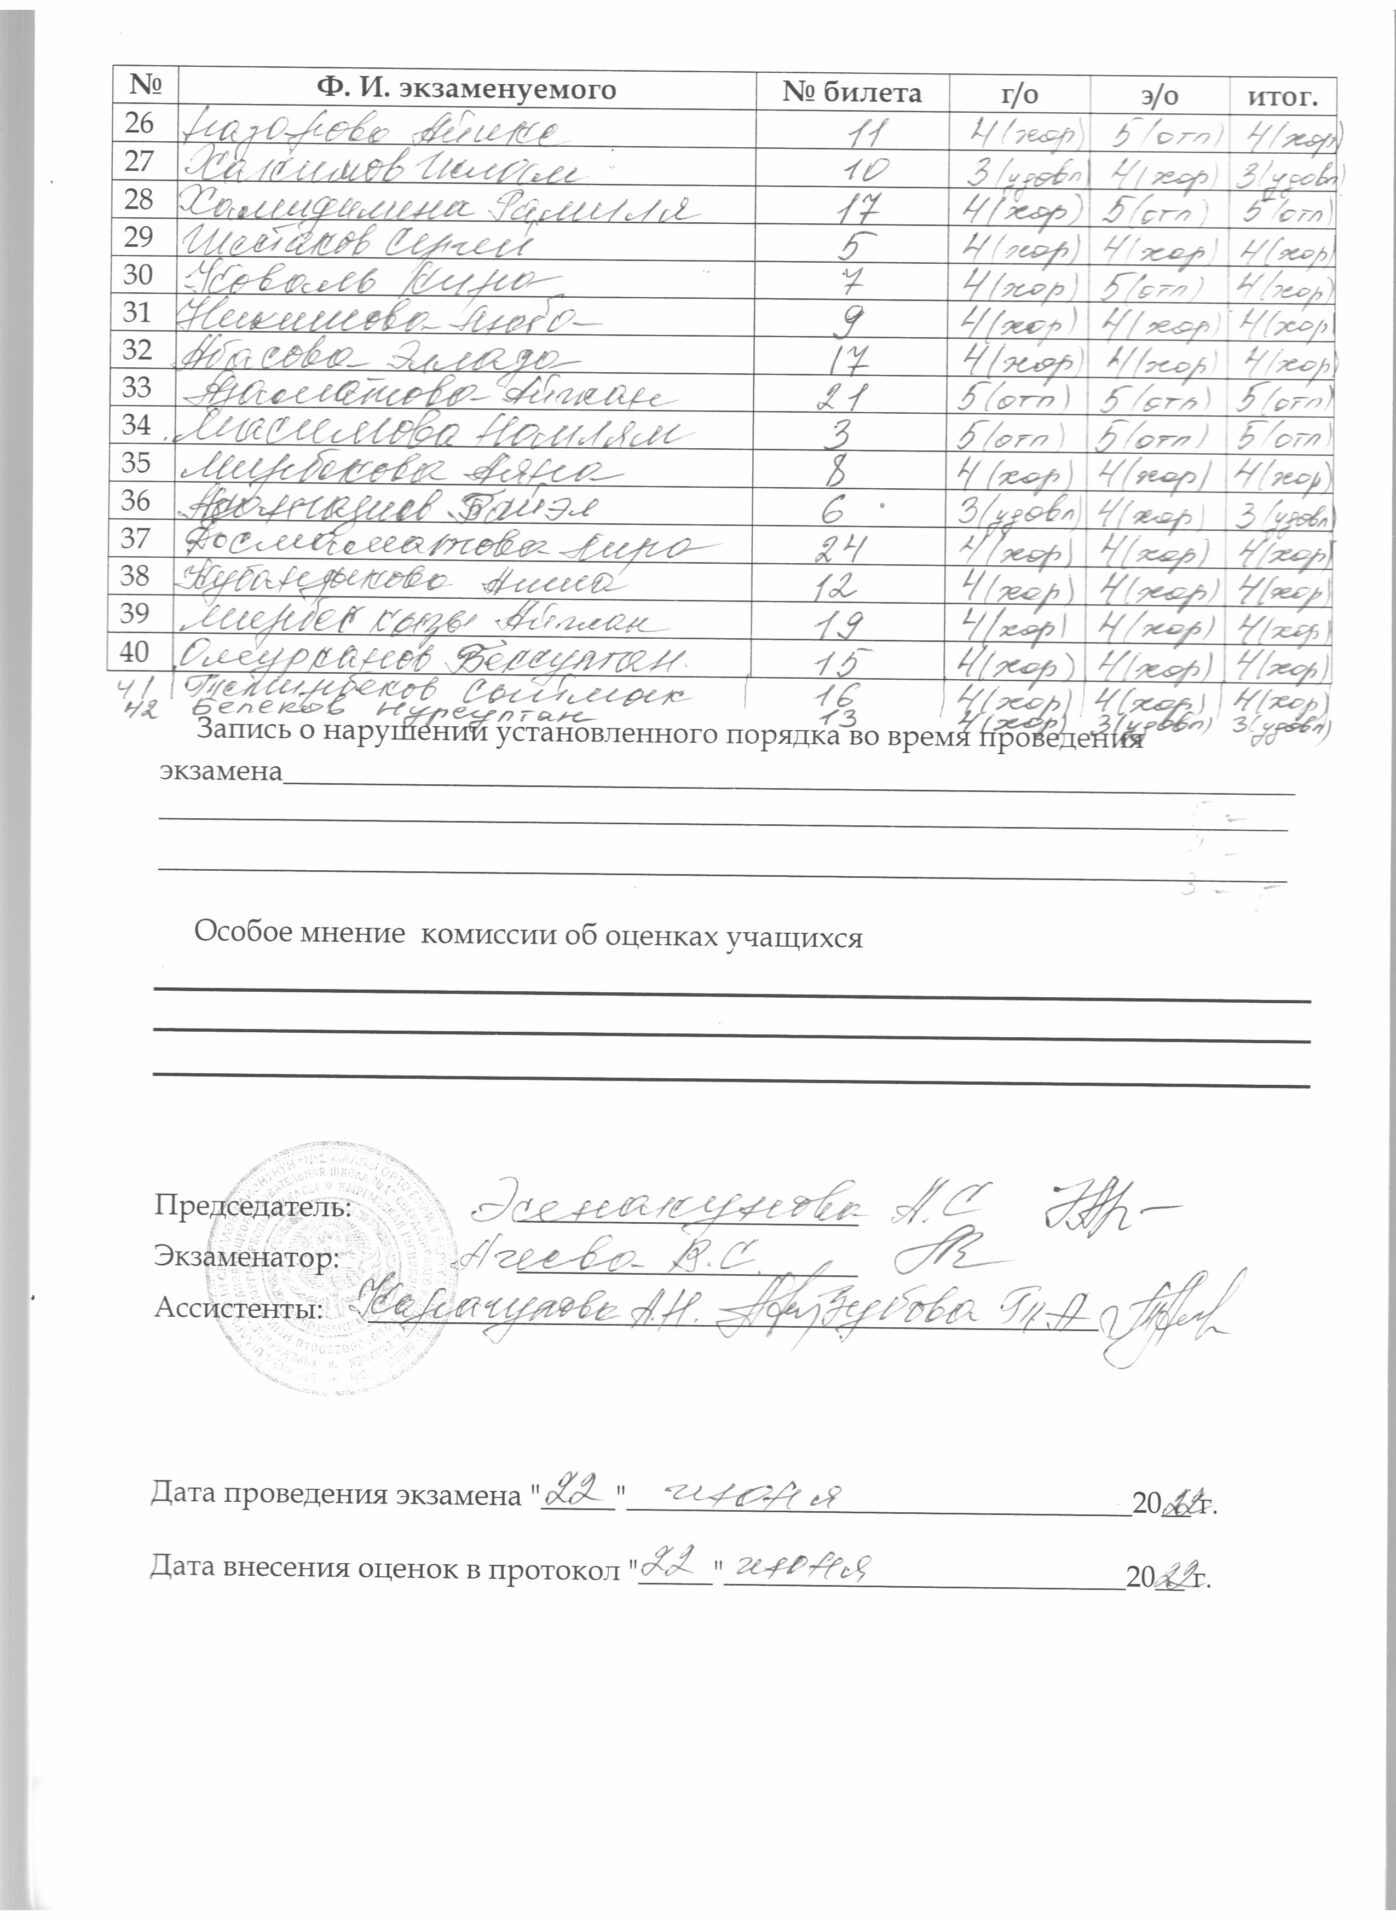 № Ф. И. экзаменуемого № билета г/о э/о итог.
26 Назарова 11 4(хор) 5(отл) 4(хор)
27 Хакимов Ислам 10 3(удовл) 4(хор) 3(удовл)
28 Хамидимина Рамиля 17 4(хор) 5(отл) 5(отл)
29 Шестаков Сергей 5 4(хор) 4(хор) 4(хор)
30 Коваль Кира 7 4(хор) 5(отл) 4(хор)
31 Никишова Люба 9 4(хор) 4(хор) 4(хор)
32 Абасова Эллада 17 4(хор) 4(хор) 4(хор)
33 Азаматова Айжан 21 5(отл) 5(отл) 5(отл)
34 Масимова 3 5(отл) 5(отл) 5(отл)
35 Мирбекова Аяна 8 4(хор) 4(хор) 4(хор)
36 6 3(удовл) 4(хор) 3(удовл)
37 Досмаматова 24 4(хор) 4(хор) 4(хор)
38 12 4(хор) 4(хор) 4(хор)
39 Мирбек кызы 19 4(хор) 4(хор) 4(хор)
40 Омурканов Бексултан 15 4(хор) 4(хор) 4(хор)
41 Сыймык 16 4(хор) 4(хор) 4(хор)
42 Белеков Нурсултан 13 4(хор) 3(удовл) 3(удовл)
Запись о нарушении установленного порядка во время проведения
экзамена
Особое мнение комиссии об оценках учащихся
Председатель: Эсенакунова А.С
Экзаменатор: Агеева В.С.
Ассистенты: Карачунова А.Н. Зубова Т.А
Дата проведения экзамена "22" июня 2022г.
Дата внесения оценок в протокол "22" июня 2022г.